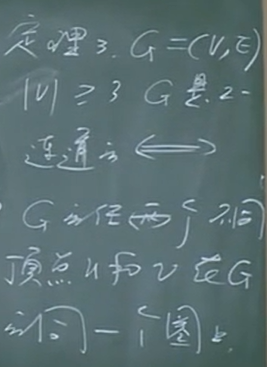 定理3. G=(V,E)
|V|≥3 G是2-
连通的 ⟺
G的任两个不同
顶点u和v在G
的同一个圈上.